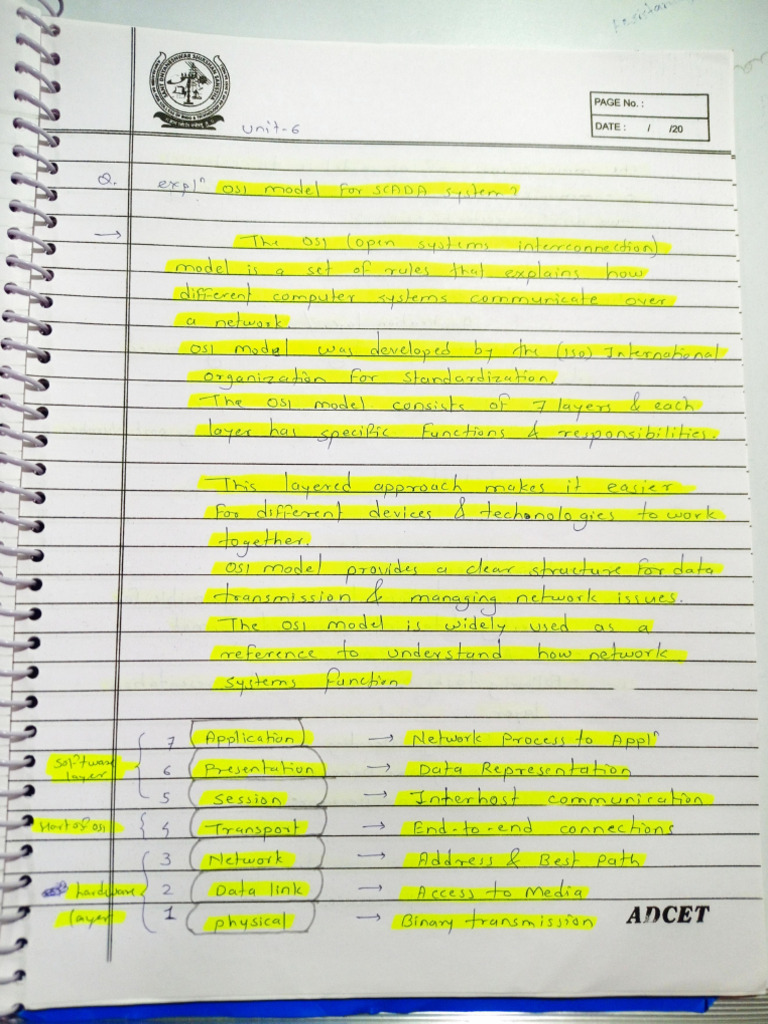 PAGE No. :
DATE : / /20
unit-6
Q. expln OSI model for SCADA system?
→ The OSI (open systems interconnection)
model is a set of rules that explains how
different computer systems communicate over
a network.
OSI model was developed by the (ISO) International
organization for standardization.
The OSI model consists of 7 layers & each
layer has specific functions & responsibilities.
This layered approach makes it easier
for different devices & technologies to work
together.
OSI model provides a clear structure for data
transmission & managing network issues.
The OSI model is widely used as a
reference to understand how network
systems function
7 Application → Network Process to Appln
software layer 6 Presentation → Data Representation
5 Session → Interhost communication
4 Transport → End-to-end connections
3 Network → Address & Best Path
hardware 2 Data link → Access to Media
layer 1 physical → Binary transmission
ADCET